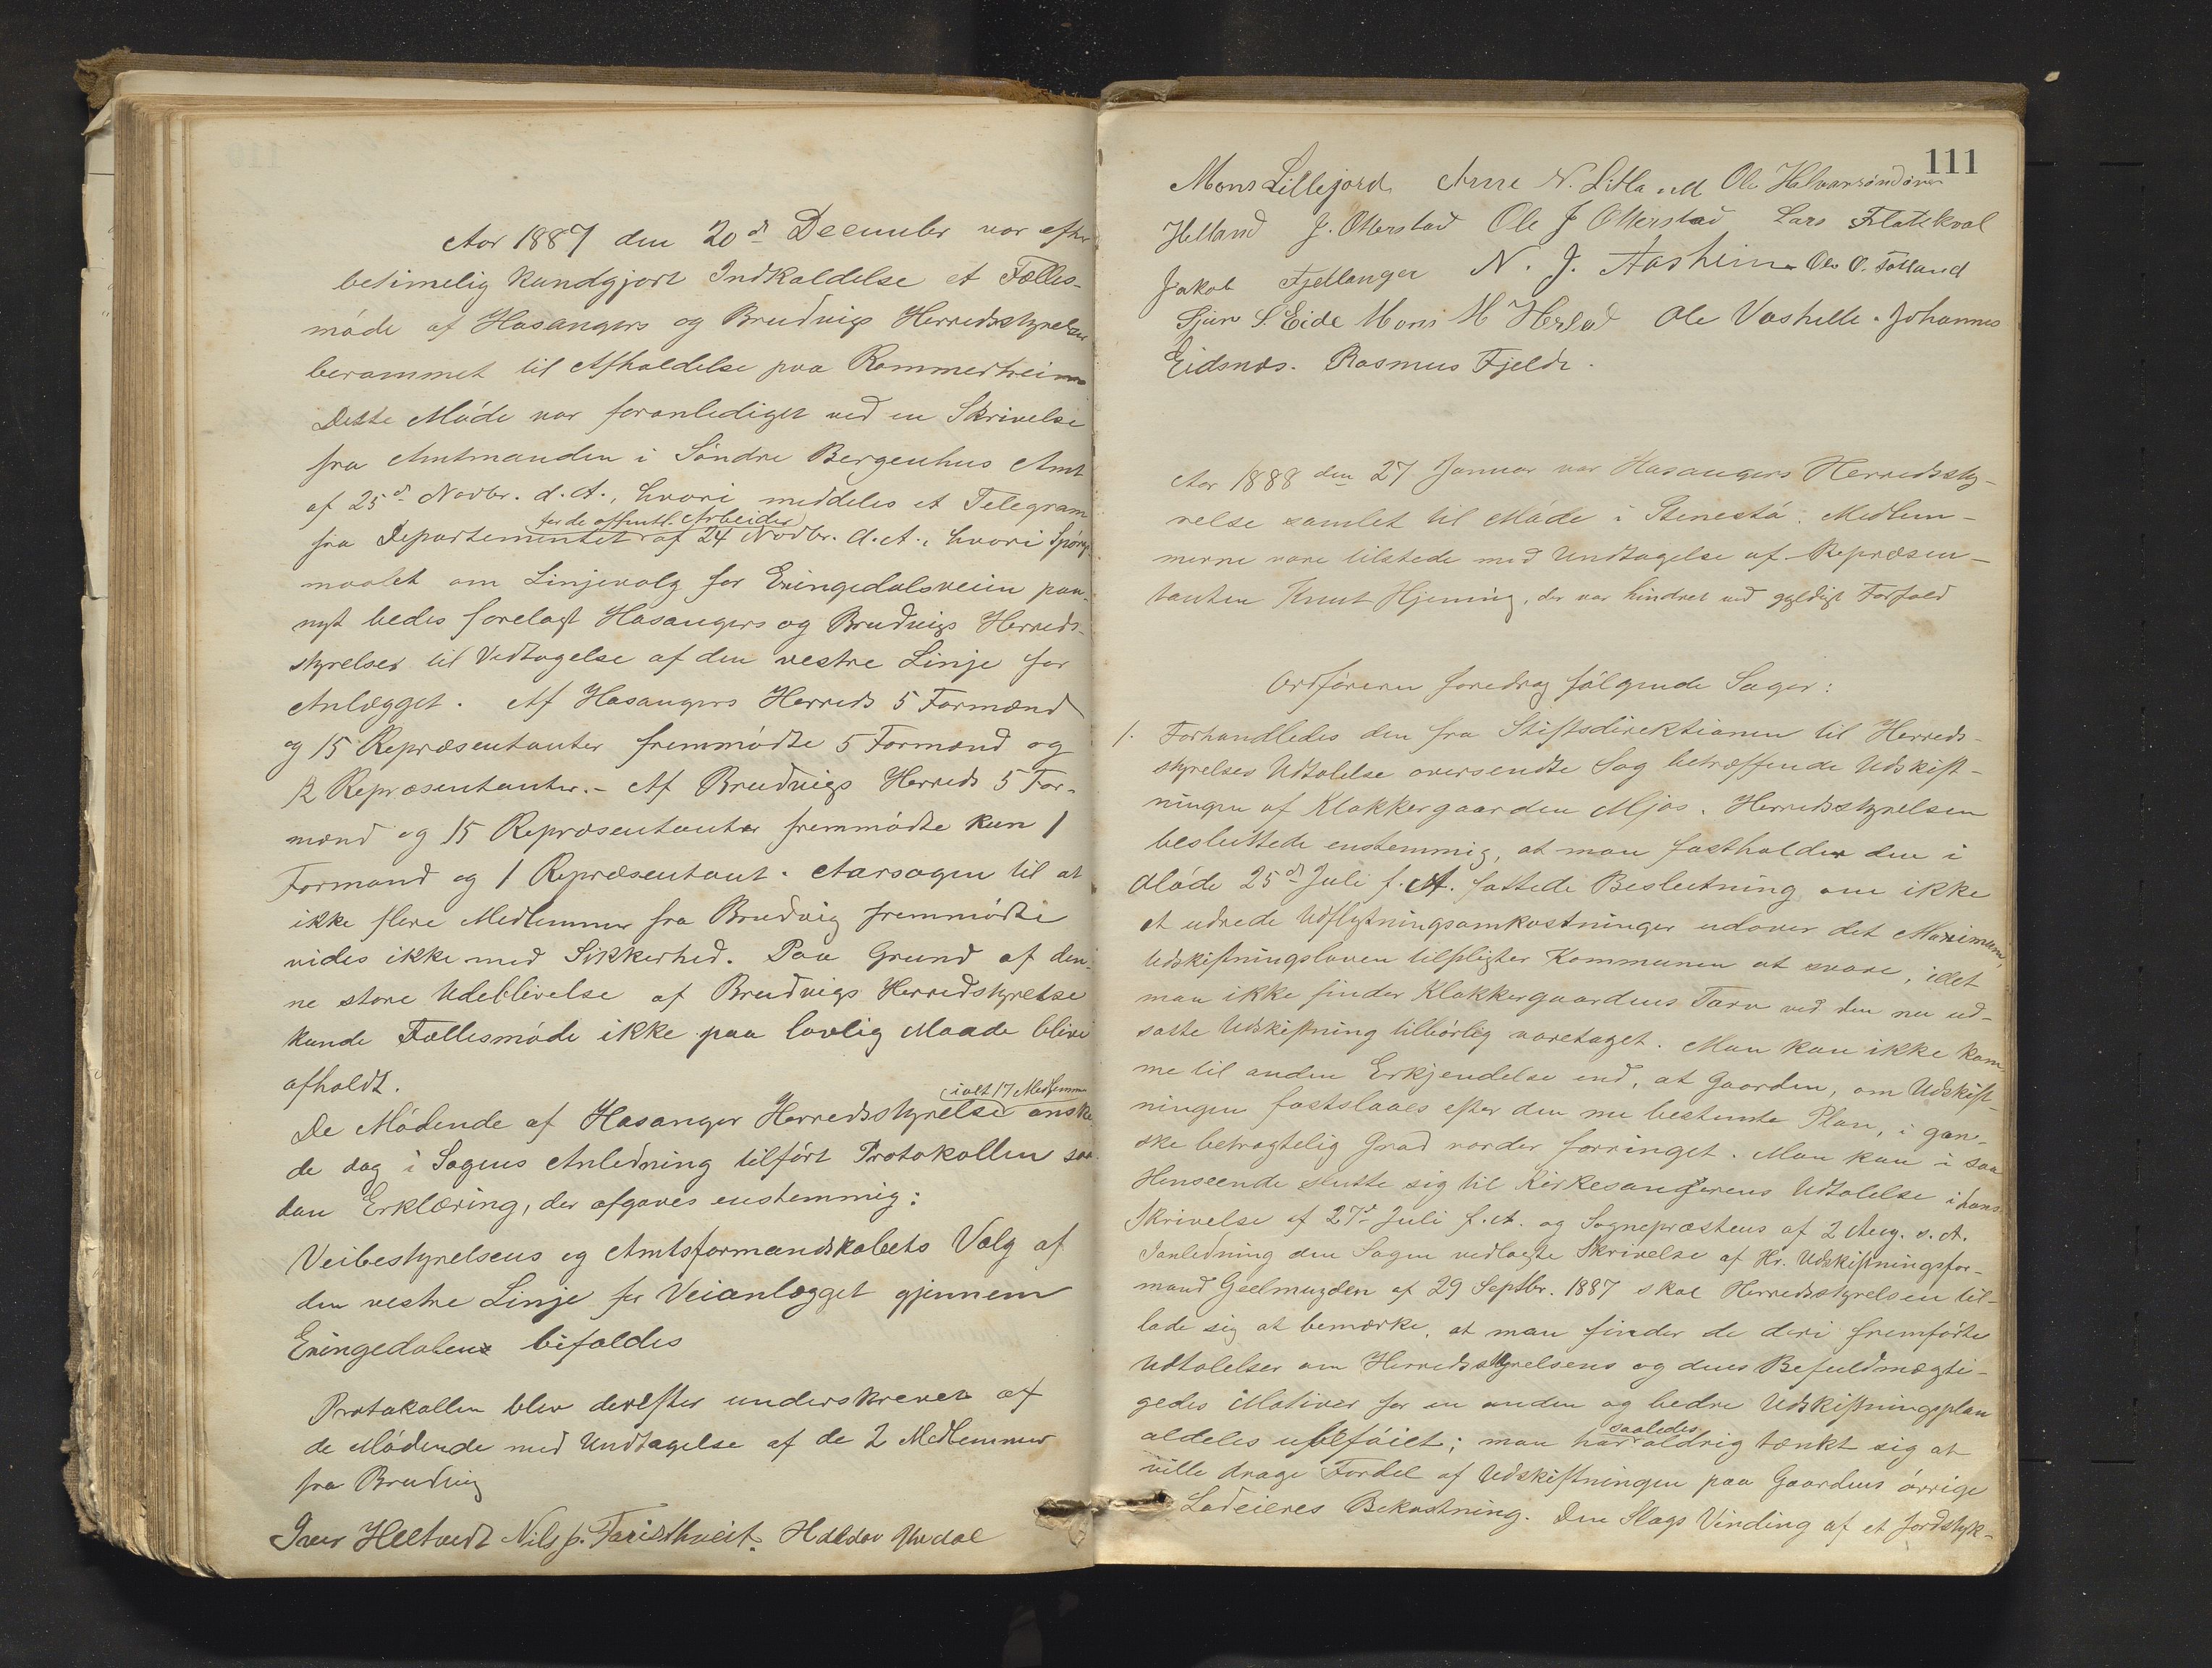 Aar 1887 den 20de December var efter
betimelig kundgjort Indkaldelse et Fælles-
møde af Hosangers og Bruviks Herredsstyrelser
berammet til Afholdelse paa Rommerheim
Dette Møde var foranlediget ved en Skrivelse
fra Amtmanden i Søndre Bergenhus Amt
af 25de Novbr. d. A., hvori meddeles et Telegram
for de offentl. Arbeider
fra Departementet af 24 Novbr. d. A., hvori Spørgs-
maalet om Linjevalg for Exingedalsveien paa-
nyt bedes forelagt Hosangers og Brudvigs Herreds-
styrelser til Vedtagelse af den vestre Linje for
Anlægget. Af Hosangers Herreds 5 Formænd
og 15 Repræsentanter fremmødte 5 Formænd og
12 Repræsentanter. - Af Brudvigs Herreds 5 For-
mænd og 15 Repræsentanter fremmødte kun 1
Formand og 1 Repræsentant. Aarsagen til at
ikke flere Medlemmer fra Brudvig fremmødte
vides ikke med Sikkerhed. Paa Grund af den-
ne store Udeblivelse af Brudvigs Herredstyrelse
kunde Fællesmøde ikke paa lovlig Maade blive
afholdt.
ialt 17 Medlemmer
De Mødende af Hosanger Herredsstyrelse ønske-
de dog i Sagens Anledning tilført Protokollen saa-
dan Erklæring, der afgaves enstemmig:
Veibestyrelsens og Amtsformandskabets Valg af
den vestre Linje for Veianlægget gjennem
Exingedalen bifaldes
Protokollen blev derefter underskrevet af
de Mødende med Undtagelse af de 2 Medlemmer
fra Brudvig
Iver Heltvedt Nils p. Farestthveit. Haldor
111
Mons Lillejord Arne N. Litland Ole Halvarsøndøven
Helland J. Otterstad Ole J Otterstad Lars Flatekval
Jakob Fjellanger N. J. Aasheim Ole O. Tolland
Sjur S. Eide Mons M Herland Ole Vashelle. Johannes
Eidsnæs. Rasmus Fjelde.
Aar 1888 den 27 Januar var Hosangers Herredssty-
relse samlet til Møde i Stenestø. Medlem-
merne vare tilstede med Undtagelse af Repræsen-
tanten Knut Hjelmving, der var hindret ved gyldigt Forfald
Ordføreren foredrog følgende Sager:
1. Forhandledes den fra Stiftsdirektionen til Herreds-
styrelses Udtalelse oversendte Sag betræffende Udskift-
ningen af Klokkergaarden Mjøs. Herredsstyrelsen
besluttede enstemmig, at man fastholder den i
Møde 25de Juli f. A. fattede Beslutning om ikke
at udrede Udflytningsomkostninger udover det Maximum,
Udskiftningsloven tilpligter Kommunen at svare, idet
man ikke finder Klokkergaardens Tarv ved den nu ud-
satte Udskiftning tilbørlig varetaget. Man kan ikke kom-
me til anden Erkjendelse end, at Gaarden, om Udskift-
ningen fastslaaes efter den nu bestemte Plan, i gan-
ske betragtelig Grad vorder forringet. Man kan i saa
Henseende slutte sig til Kirkesangerens Udtalelse i hans
Skrivelse af 27de Juli f. A. og Sognepræstens af 2 Aug. s. A.
Ianledning den Sagen vedlagte Skrivelse af Hr. Udskiftningsfor-
mand Geelmuyden af 29 Septbr. 1887 skal Herredsstyrelsen til-
lade sig at bemærke, at man finder de deri fremførte
Udtalelser om Herredsstyrelsens og dens Befuldmægti-
gedes Motiver for en anden og bedre Udskiftningsplan
saaledes
aldeles ubeføiet; man har aldrig tænkt sig at
ville drage Fordel af Udskiftningen paa Gaardens øvrige
Lodeieres Bekostning. Den Slags Vinding af et Jordstyk-